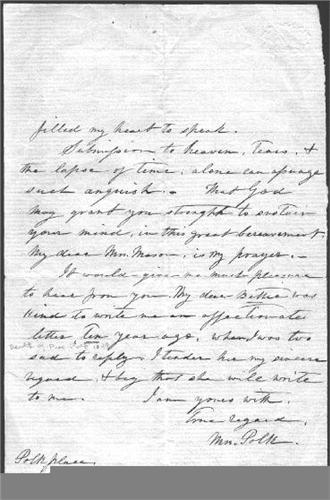 filled my heart to speak.
Submission to heaven, Tears, &
the lapse of time, alone can assuage
such anguish. - That God
may grant you strength to sustain
your mind, in this great bereavement,
My dear Mrs. Mason, is my prayer. -
It would give me much pleasure
to hear from you. My dear Bettie was
kind to write me an affectionate
letter ten year ago, when I was too
sad to reply. I tender her my sincere
regard, & beg that she will write
to me. I am yours with
true regard,
Mrs. Polk.
Polk place.